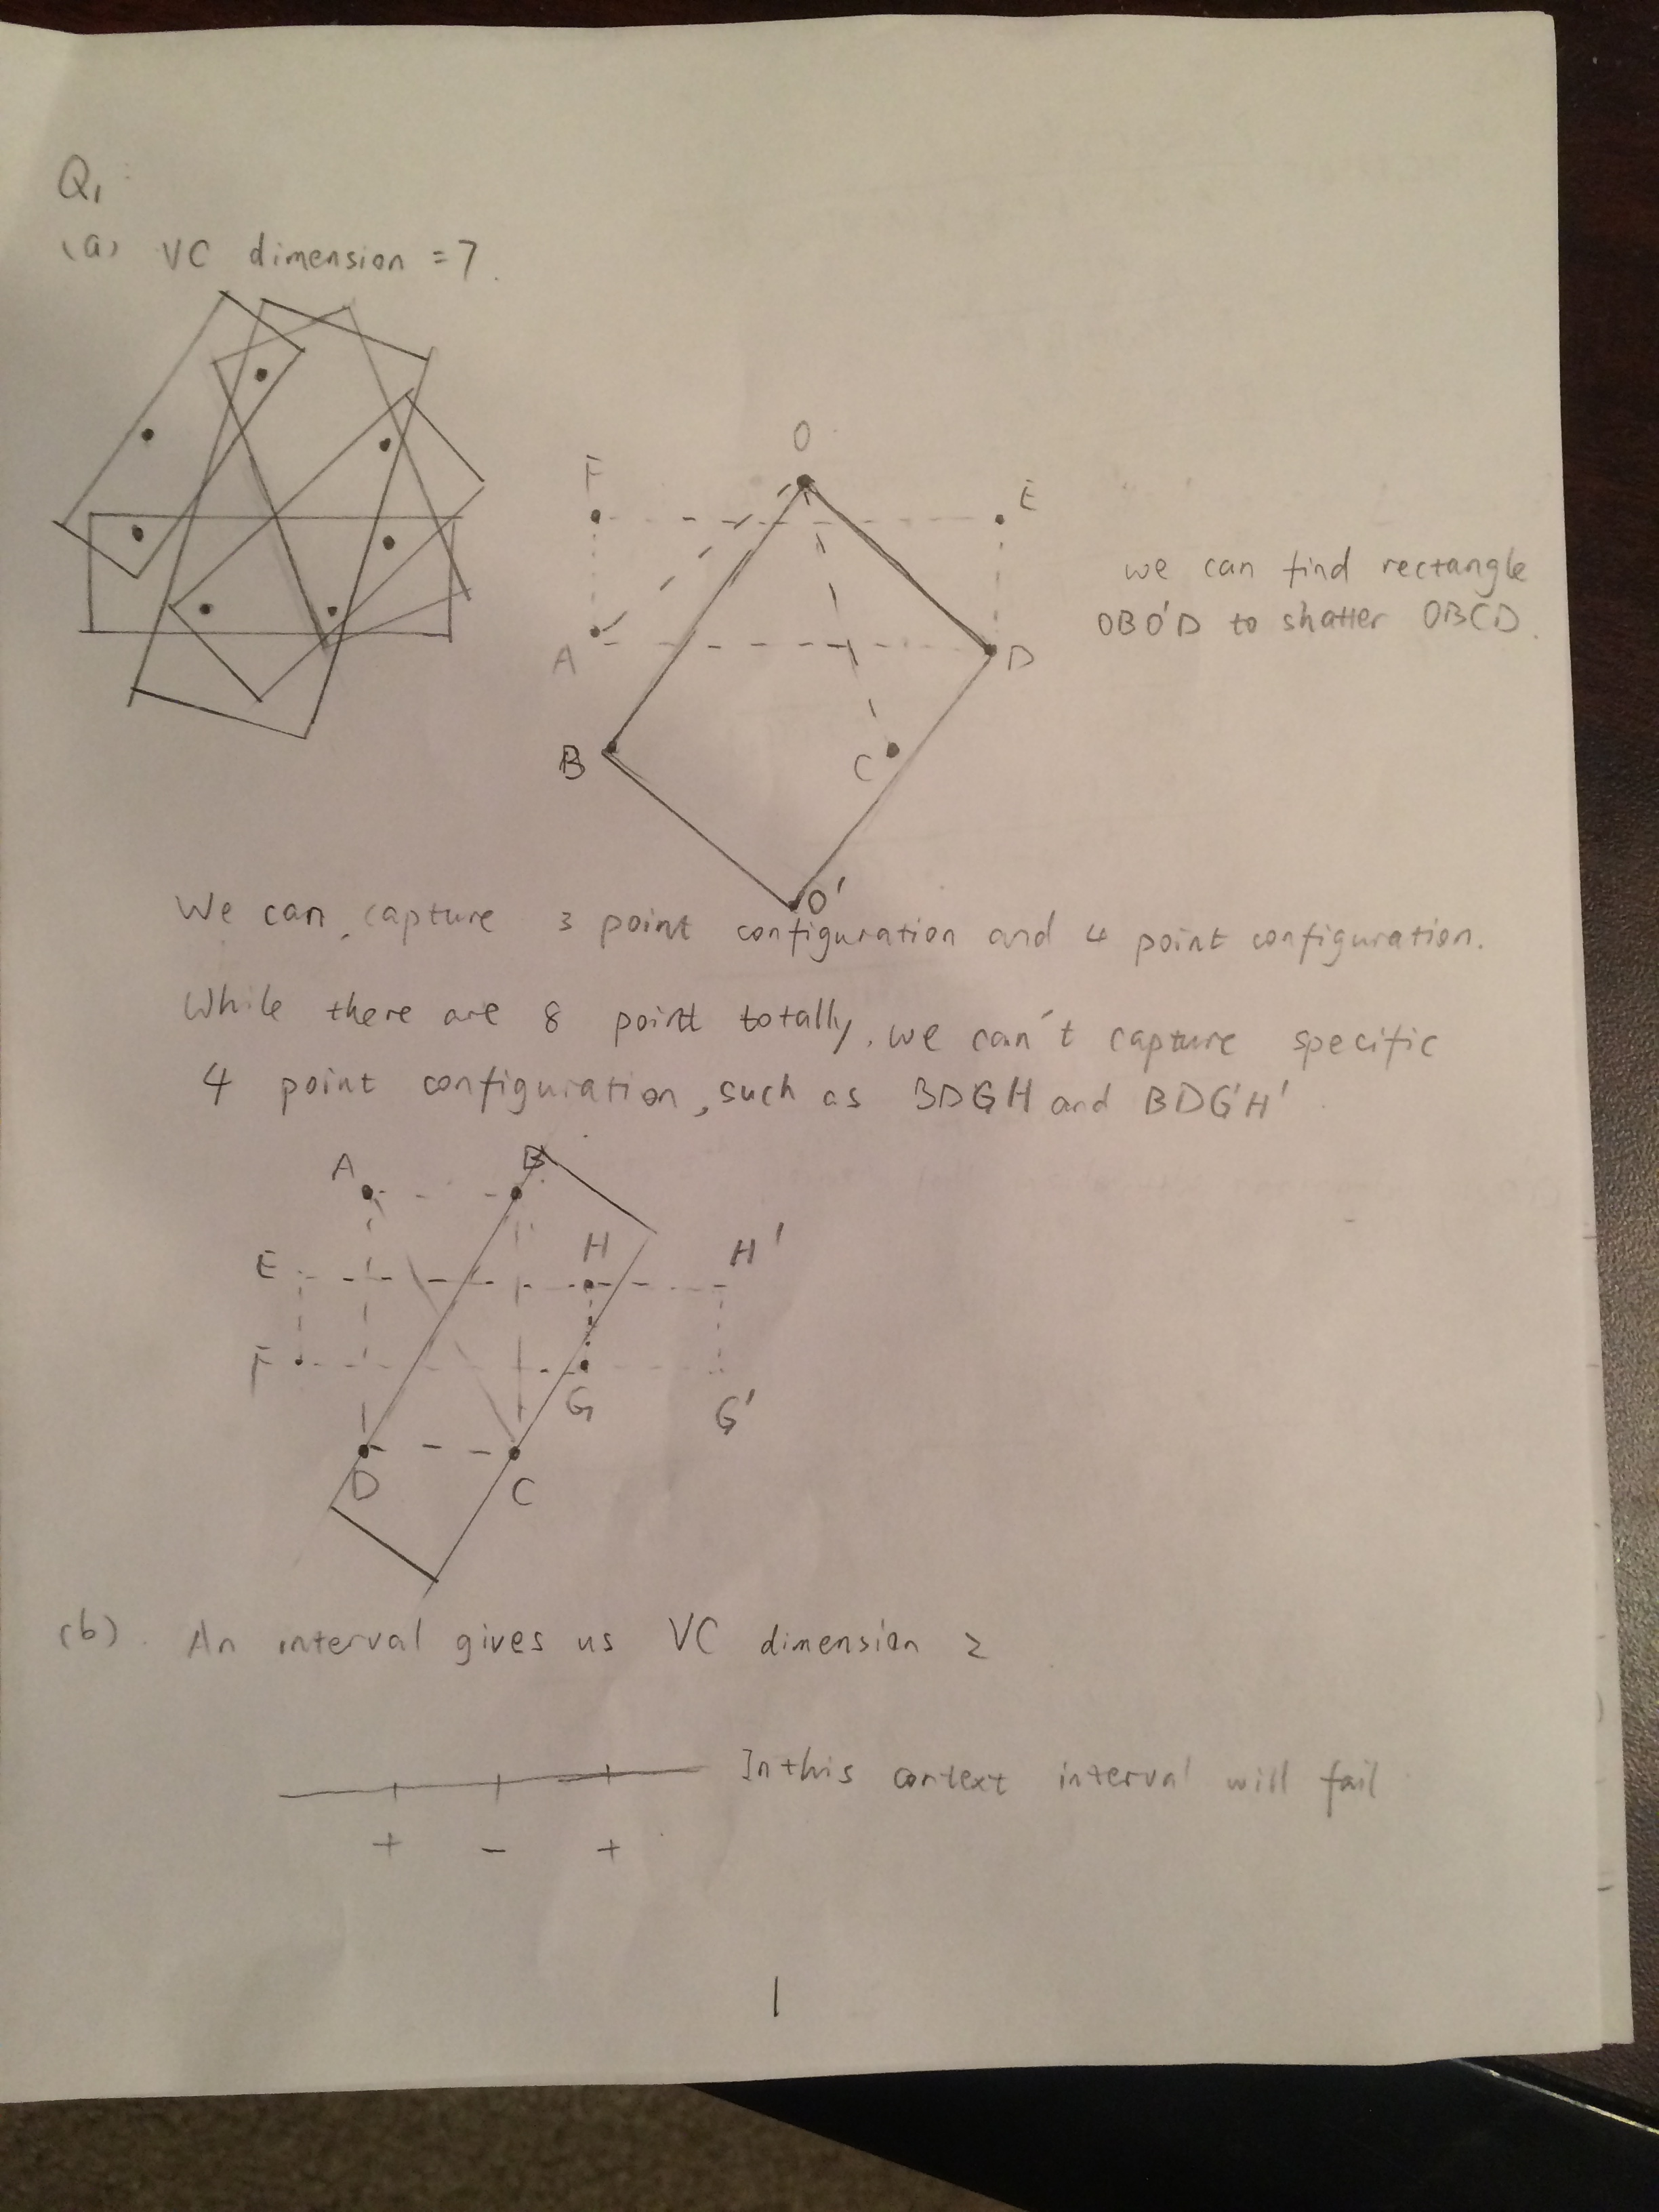 Q1
(a) VC dimension = 7.
O
F
E
we can find rectangle
OBO'D to shatter OBCD.
A
D
B
C
O'
We can, capture 3 point configuration and 4 point configuration.
While there are 8 point totally, we can't capture specific
4 point configuration, such as BDGH and BDG'H'.
A
B
E
H
H'
F
G
G'
D
C
(b). An interval gives us VC dimension 2
In this context interval will fail
+ - +
1